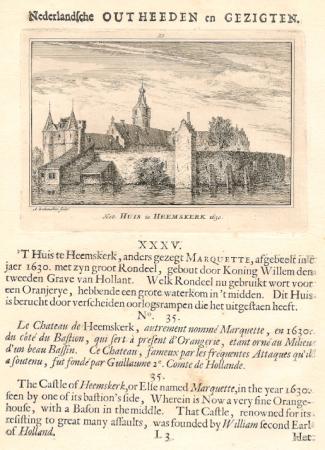 Nederlandsche OUTHEEDEN en GEZIGTEN.
35
Het HUIS te HEEMSKERK 1630.
XXXV.
'T Huis te Heemskerk, anders gezegt MARQUETTE, afgebeelt in 't
jaer 1630. met zyn groot Rondeel, gebout door Koning Willem den
tweeden Grave van Hollant. Welk Rondeel nu gebruikt wort voor
een Oranjerye, hebbende een grote waterkom in 't midden. Dit Huis
is berucht door verscheiden oorlogsrampen die het uitgestaen heeft.
No. 35.
Le Chateau de Heemskerk, autrement nommé Marquette, en 1630.
du côté du Bastion, qui sert à present d'Orangerie, etant orné au Milieu
d'un beau Bassin. Ce Chateau, fameux par les fréquentes Attaques qu'il
a soutenu, fut fondé par Guillaume 2e. Comte de Hollande.
35.
The Castle of Heemskerk, or Else named Marquette, in the year 1630.
seen by one of its bastion's side, Wherein is Now a very fine Orange-
house, with a Bason in the middle. That Castle, renowned for its
resisting to great many assaults, was founded by William second Earl
of Holland.
I. 3
Het